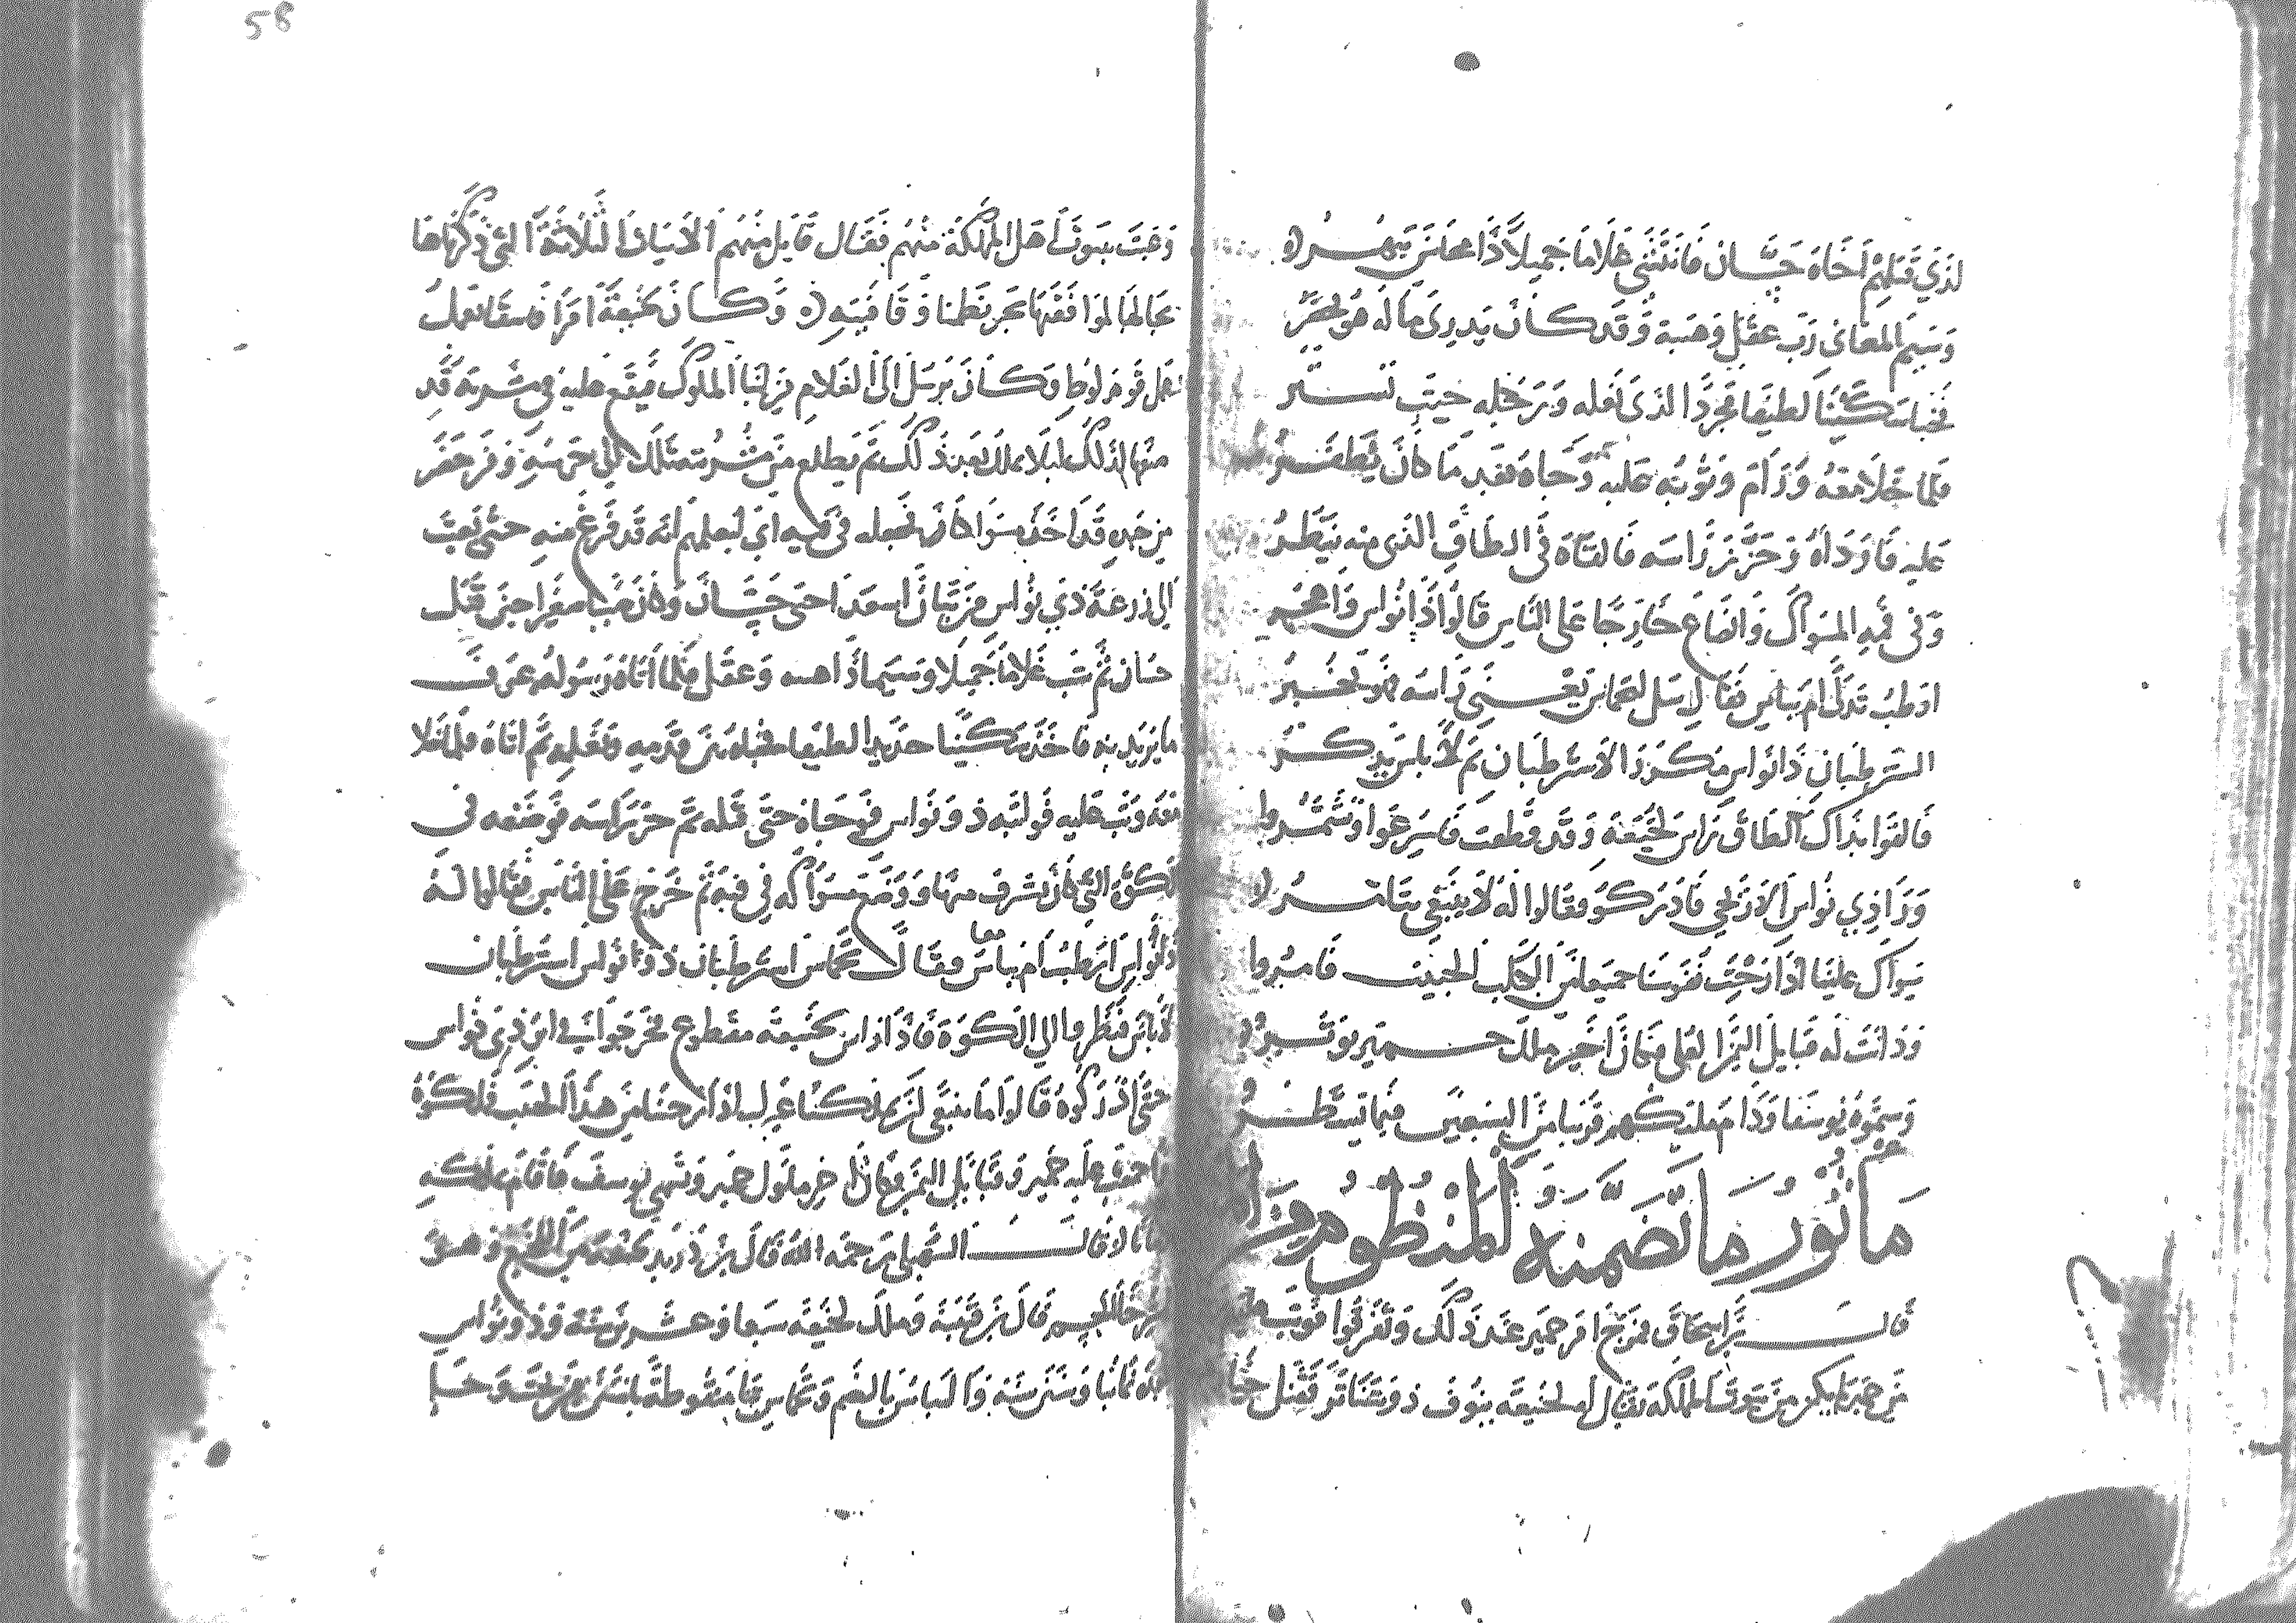 لذي قتلهم أخاه حسان فانثنى غلاما جميلا ذا محاسن يبهر
وسيم المعاني رب عقل وهيبة وقد كان يدري ما له هو يحضر
فخبا سكينا لطيفا مجردا لذى نعله ورجله حيث تستر
فلما خلا معه ورام وثوبه عليه وجاه بعد ما كان يظفر
عليه فاوداه وحز راسه فالقاه في الطاق الذي منه ينظر
وفي فمه المسواك وانصاع خارجا على الناس قالوا ذا نواس واهجر
ارطب تدلى ام يباس فقال سل لنخماس يعني راسه فهو يخبر
استرطبان ذا نواس مكررا لاسترطبان ثم لا باس يذكر
فالفوا بذاك الطاق راس لخنيعة وقد قطعت فاسرعوا وتشمروا
ورا ذي نواس الاريحي فادركو فقالوا له لا ينبغي متامر
سواك علينا اذ ارحت نفوسنا جميعا من الكلب الخبيث فامروا
ودانت له قبايل اليمن العلى فكان اخير ملك حمير يوثر
وسموه يوسفا ودام ملكهم قريبا من السبعين فيما تسطر
مأثور ما تضمنه المنظوم
قال بن اسحاق فمرج امر حمير عند ذلك وتفرقوا فوثب عليهم
من حمير لم يكن من بيوت المملكة يقال له لخنيعة ينوف ذو شناتر فقتل خيارهم
وعبث ببيوت اهل المملكة منهم فقال قايل منهم الابيات الثلاثة التي ذكرناها
بحالها لموافقتها بحر نظمنا وقافيته وكان لخنيعة امرا فاسقا يعمل
عمل قوم لوط وكان يرسل الى الغلام من ابنا الملوك فيقع عليه في مشربة قد
صنعها لذلك ليلا يملك بعد ذلك ثم يطلع من مشربته تلك الى حرسه ومن حضر
من جنده قد اخذ مسواكا فجعله في فيه اي ليعلمهم انه قد فرغ منه حتى بعث
الى زرعة ذي نواس بن تبان اسعد اخي حسان وكان صبيا صغيرا حين قتل
حسان ثم شب غلاما جميلا وسيما ذا هيه وعقل فلما اتاه رسوله عرف
ما يريد به فاخذ سكينا حديدا لطيفا فخباه بين قدميه ونعله ثم اتاه فلما خلا
معه وثب عليه فواثبه ذو نواس فوجاه حتى قتله ثم حز راسه فوضعه في
الكوة التي كان يشرف منها ووضع مسواكه في فيه ثم خرج على الناس فقالوا له
ذا نواس ارطب ام يباس فقال سل نخماس استرطبان ذو نواس استرطبان
لا باس فنظروا الى الكوة فاذا راس لخنيعة مقطوع فخرجوا في اثر ذي نواس
حتى ادركوه فقالوا ما ينبغي ان يملكنا غيرك اذ ارحتنا من هذا الخبيث فملكوه
واجتمعت عليه حمير وقبايل اليمن فكان اخر ملوك حمير وتسمى يوسف فاقام بملكه
زمانا قال السهيلي رحمه الله قال بن دريد لخنيعة من اللخع وهو
استرخا الجسم قال بن قتيبة وملك لخنيعة سبعا وعشرين سنة وذو نواس
بعده ثمانيا وستين سنة والباس بالضم ونخماس